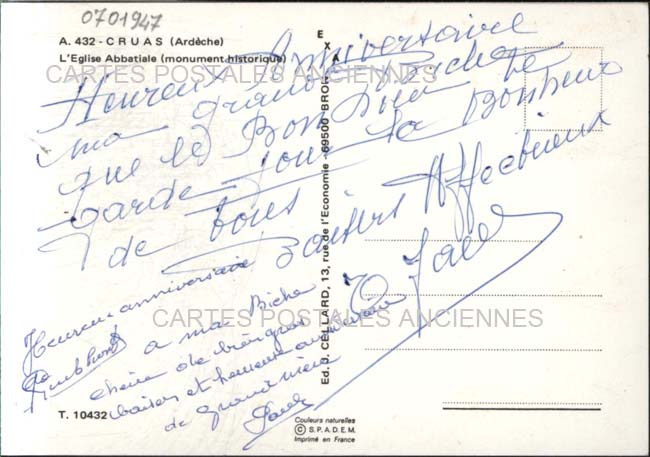 0701947
A. 432 - CRUAS (Ardèche)
L'Eglise Abbatiale (monument historique)
CARTES POSTALES ANCIENNES
Heureux Anniversaire
ma grande
que le Bon Dieu te
garde pour le Bonheur
de tous
Baisers Affectueux
Heureux anniversaire
a ma Biche
chérie de
baisers et heureux anniversaire
de grand mère
CARTES POSTALES ANCIENNES
EXA
Ed. D. CELLARD, 13, rue de l'Economie - 69500 BRON
T. 10432
Couleurs naturelles
© S.P.A.D.E.M.
Imprimé en France